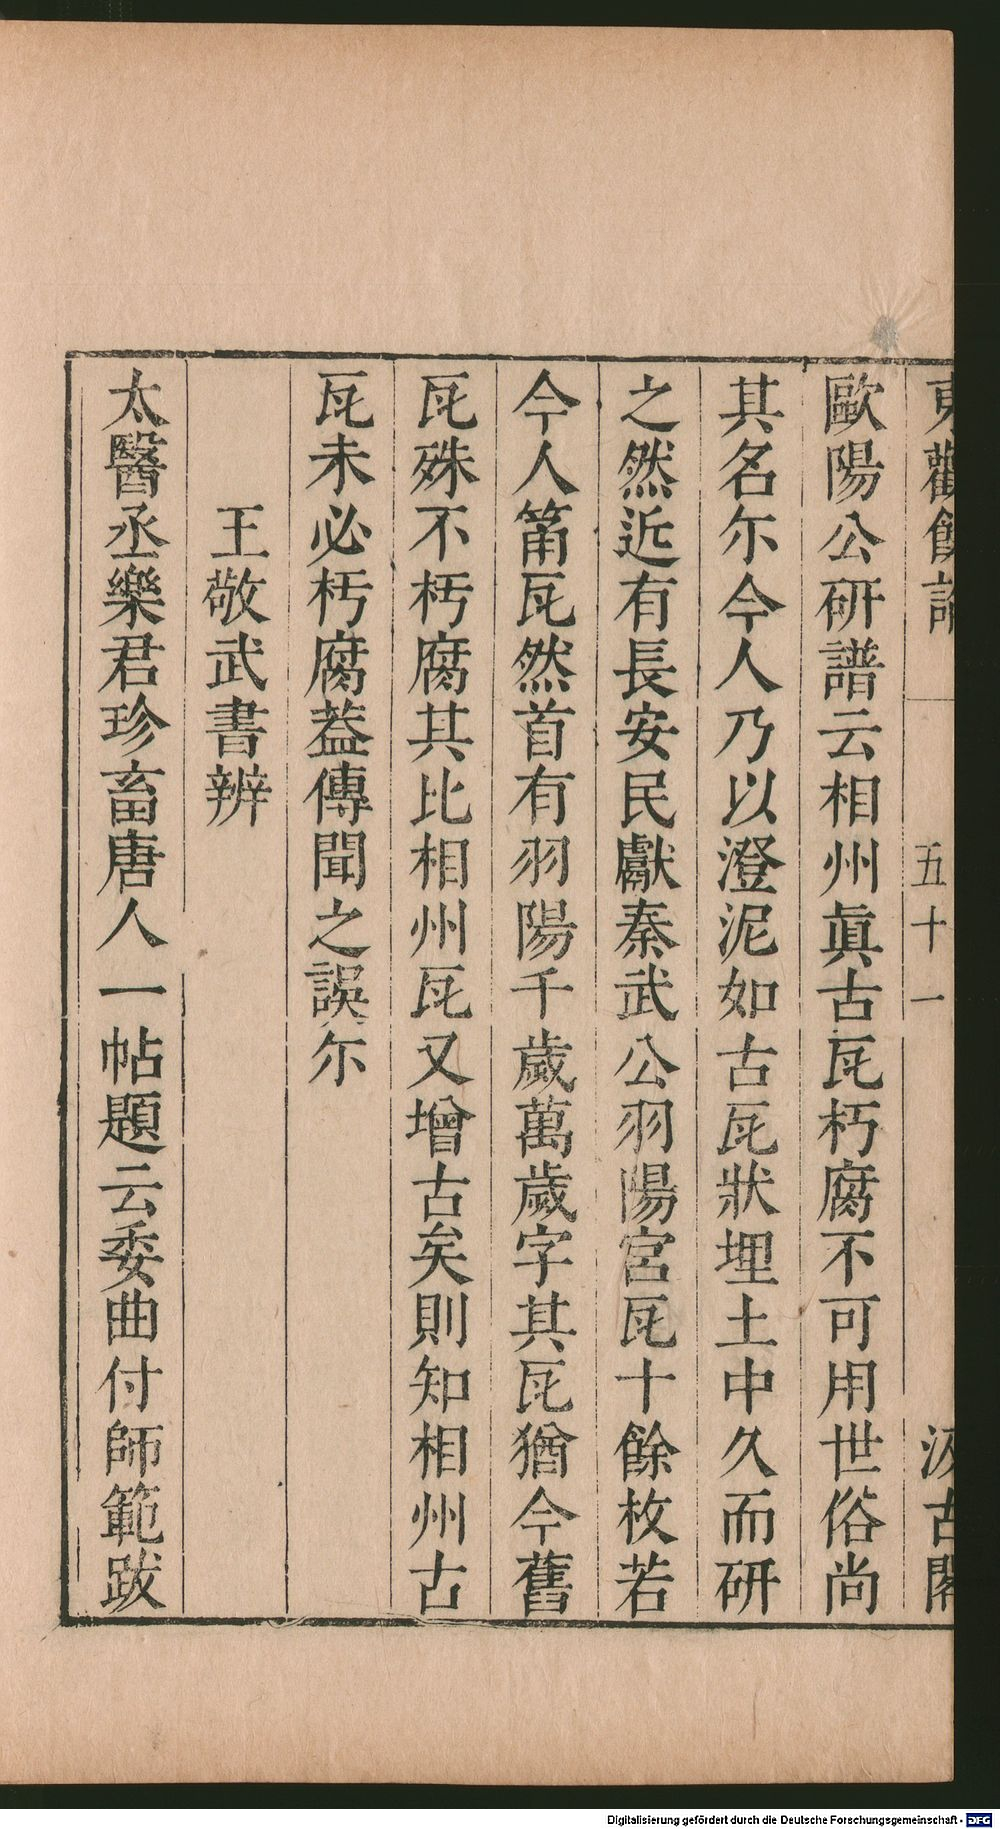 東觀餘論 五十一 汲古閣
歐陽公硏譜云相州眞古瓦朽腐不可用世俗尚
其名尓今人乃以澄泥如古瓦狀埋土中久而研
之然近有長安民獻秦武公羽陽宮瓦十餘枚若
今人筩瓦然首有羽陽千歲萬歲字其瓦猶今舊
瓦殊不朽腐其比相州瓦又增古矣則知相州古
瓦未必朽腐葢傳聞之誤尓
王敬武書辨
太醫丞樂君珍畜唐人一帖題云委曲付師範跋
Digitalisierung gefördert durch die Deutsche Forschungsgemeinschaft - DFG